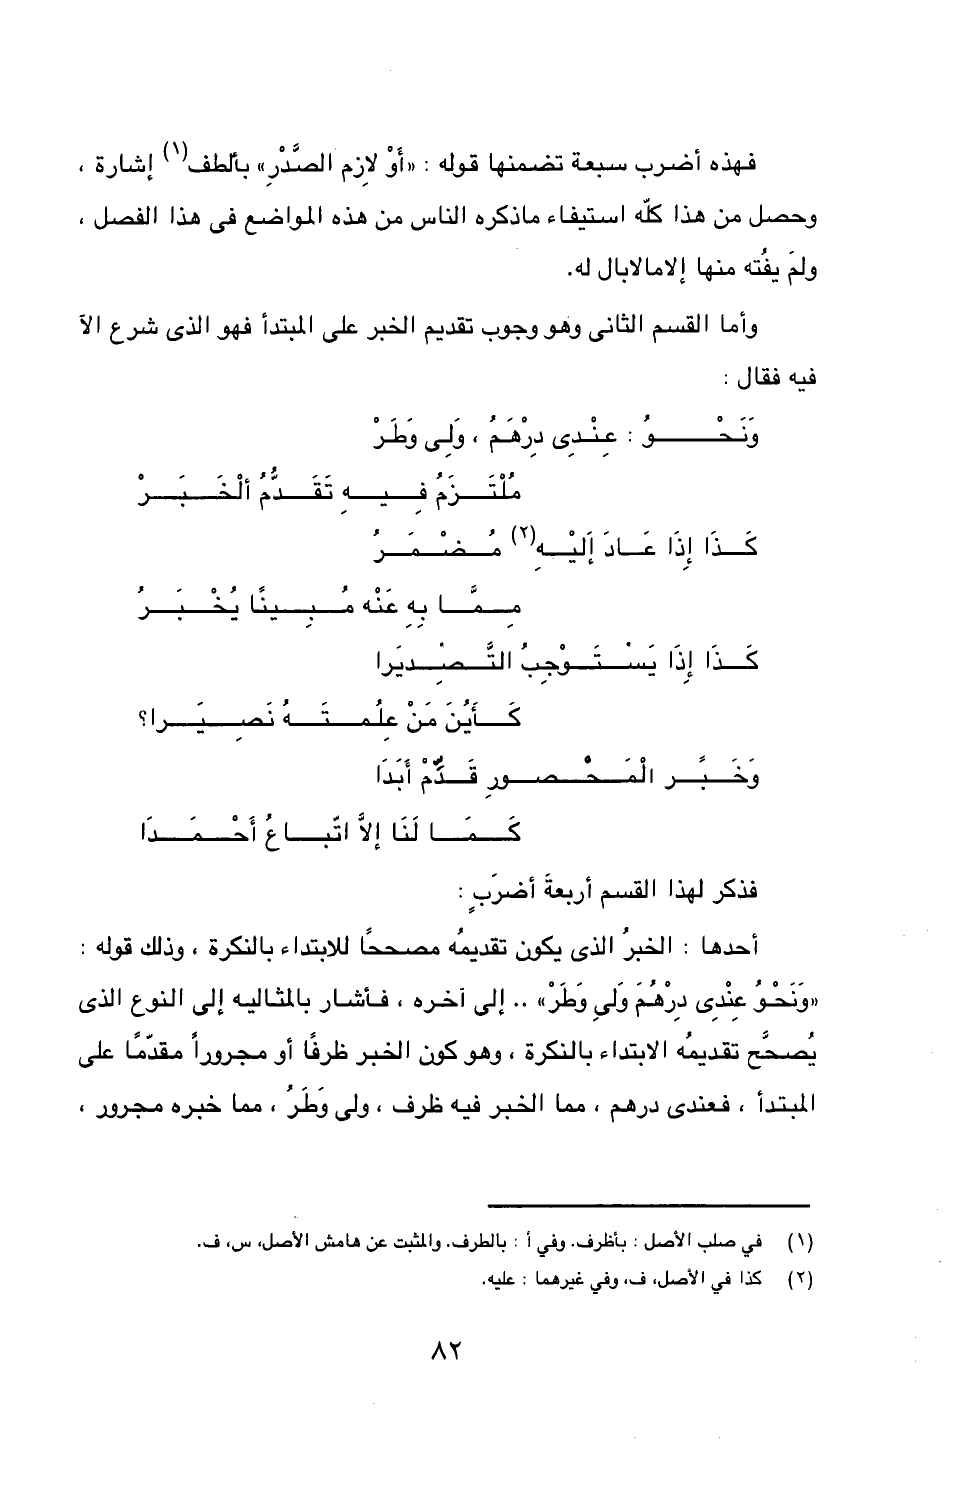 فهذه أضرب سبعة تضمنها قوله : «أَوْ لازِم الصَّدْرِ» بألطف(١) إشارة ،
وحصل من هذا كلّه استيفاء ماذكره الناس من هذه المواضع فى هذا الفصل ،
ولمَ يفُته منها إلامالابال له.
وأما القسم الثانى وهو وجوب تقديم الخبر على المبتدأ فهو الذى شرع الآ
فيه فقال :
وَنَحْـــوُ : عِنْدِى دِرْهَمُ ، وَلِى وَطَرْ
مُلْتَـزَمُ فِـيـهِ تَقَـدُّمُ ألْخَـبَـرْ
كَـذَا إِذَا عَـادَ إَلَيْـهِ(٢) مُـضْـمَـرُ
مِـمَّـا بِهِ عَنْه مُـبِـينًا يُخْـبَـرُ
كَـذَا إِذَا يَسْـتَـوْجِبُ التَّـصْـدِيَرا
كَـأَيْنَ مَنْ عِلُمـتَـهُ نَصِـيَـرا؟
وَخَـبَّـر الْمَـحْـصـورِ قَـدِّمْ أَبَدَا
كَـمَـا لَنَا إلاَّ اتّبـاعُ أَحْـمَـدَا
فذكر لهذا القسم أربعةَ أضرَبٍ :
أحدها : الخبرُ الذى يكون تقديمُه مصححًا للابتداء بالنكرة ، وذلك قوله :
«وَنَحْوُ عِنْدِى دِرْهُمَ وَلِي وَطَرْ» .. إلى آخره ، فأشار بالمثاليه إلى النوع الذى
يُصحَّح تقديمُه الابتداء بالنكرة ، وهو كون الخبر ظرفًا أو مجروراً مقدّمًا على
المبتدأ ، فعندى درهم ، مما الخبر فيه ظرف ، ولى وَطَرُ ، مما خبره مجرور ،
(١) في صلب الأصل : بأظرف. وفي أ : بالطرف. والمثبت عن هامش الأصل، س، ف.
(٢) كذا في الأصل، ف، وفي غيرهما : عليه.
٨٢